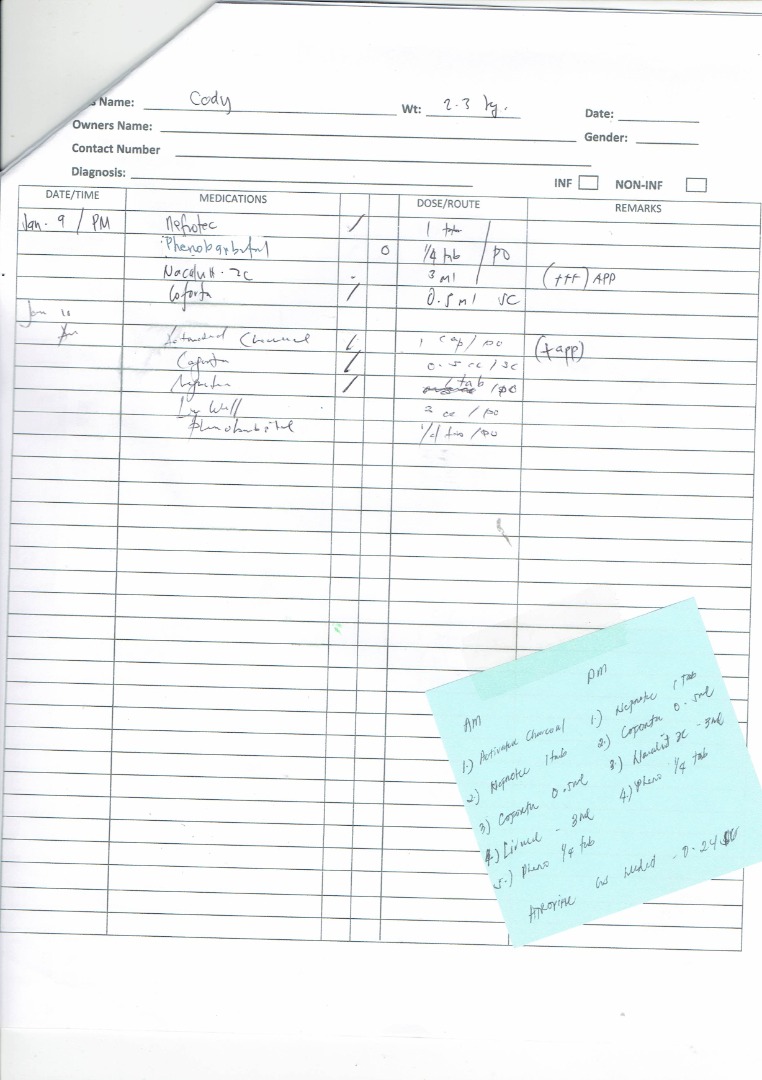 Name: Cody Wt: 2.3 kg. Date:
Owners Name: Gender:
Contact Number
Diagnosis: INF NON-INF
DATE/TIME MEDICATIONS DOSE/ROUTE REMARKS
Jan. 9 / PM Nefrotec / 1 tab
Phenobarbital 0 1/4 tab / PO
3 ml (+++) APP
Coforta / 0.5 ml SC
Jan
Am Activated Charcoal 1 cap / po (+app)
0.5 cc / sc
/ 1 tab / po
Liv Well 3 cc / po
Phenobarbital / po
AM
1.) Activated Charcoal
2.) Neprotec 1 tab
3.) Coporta 0.5ml
4.) - 3ml
5.) Pheno 1/4 tab
PM
1.) Neprotec 1 tab
2.) Coporta 0.5ml
3.) 2c - 3ml
4.) Pheno 1/4 tab
Atropine as needed - 0.24